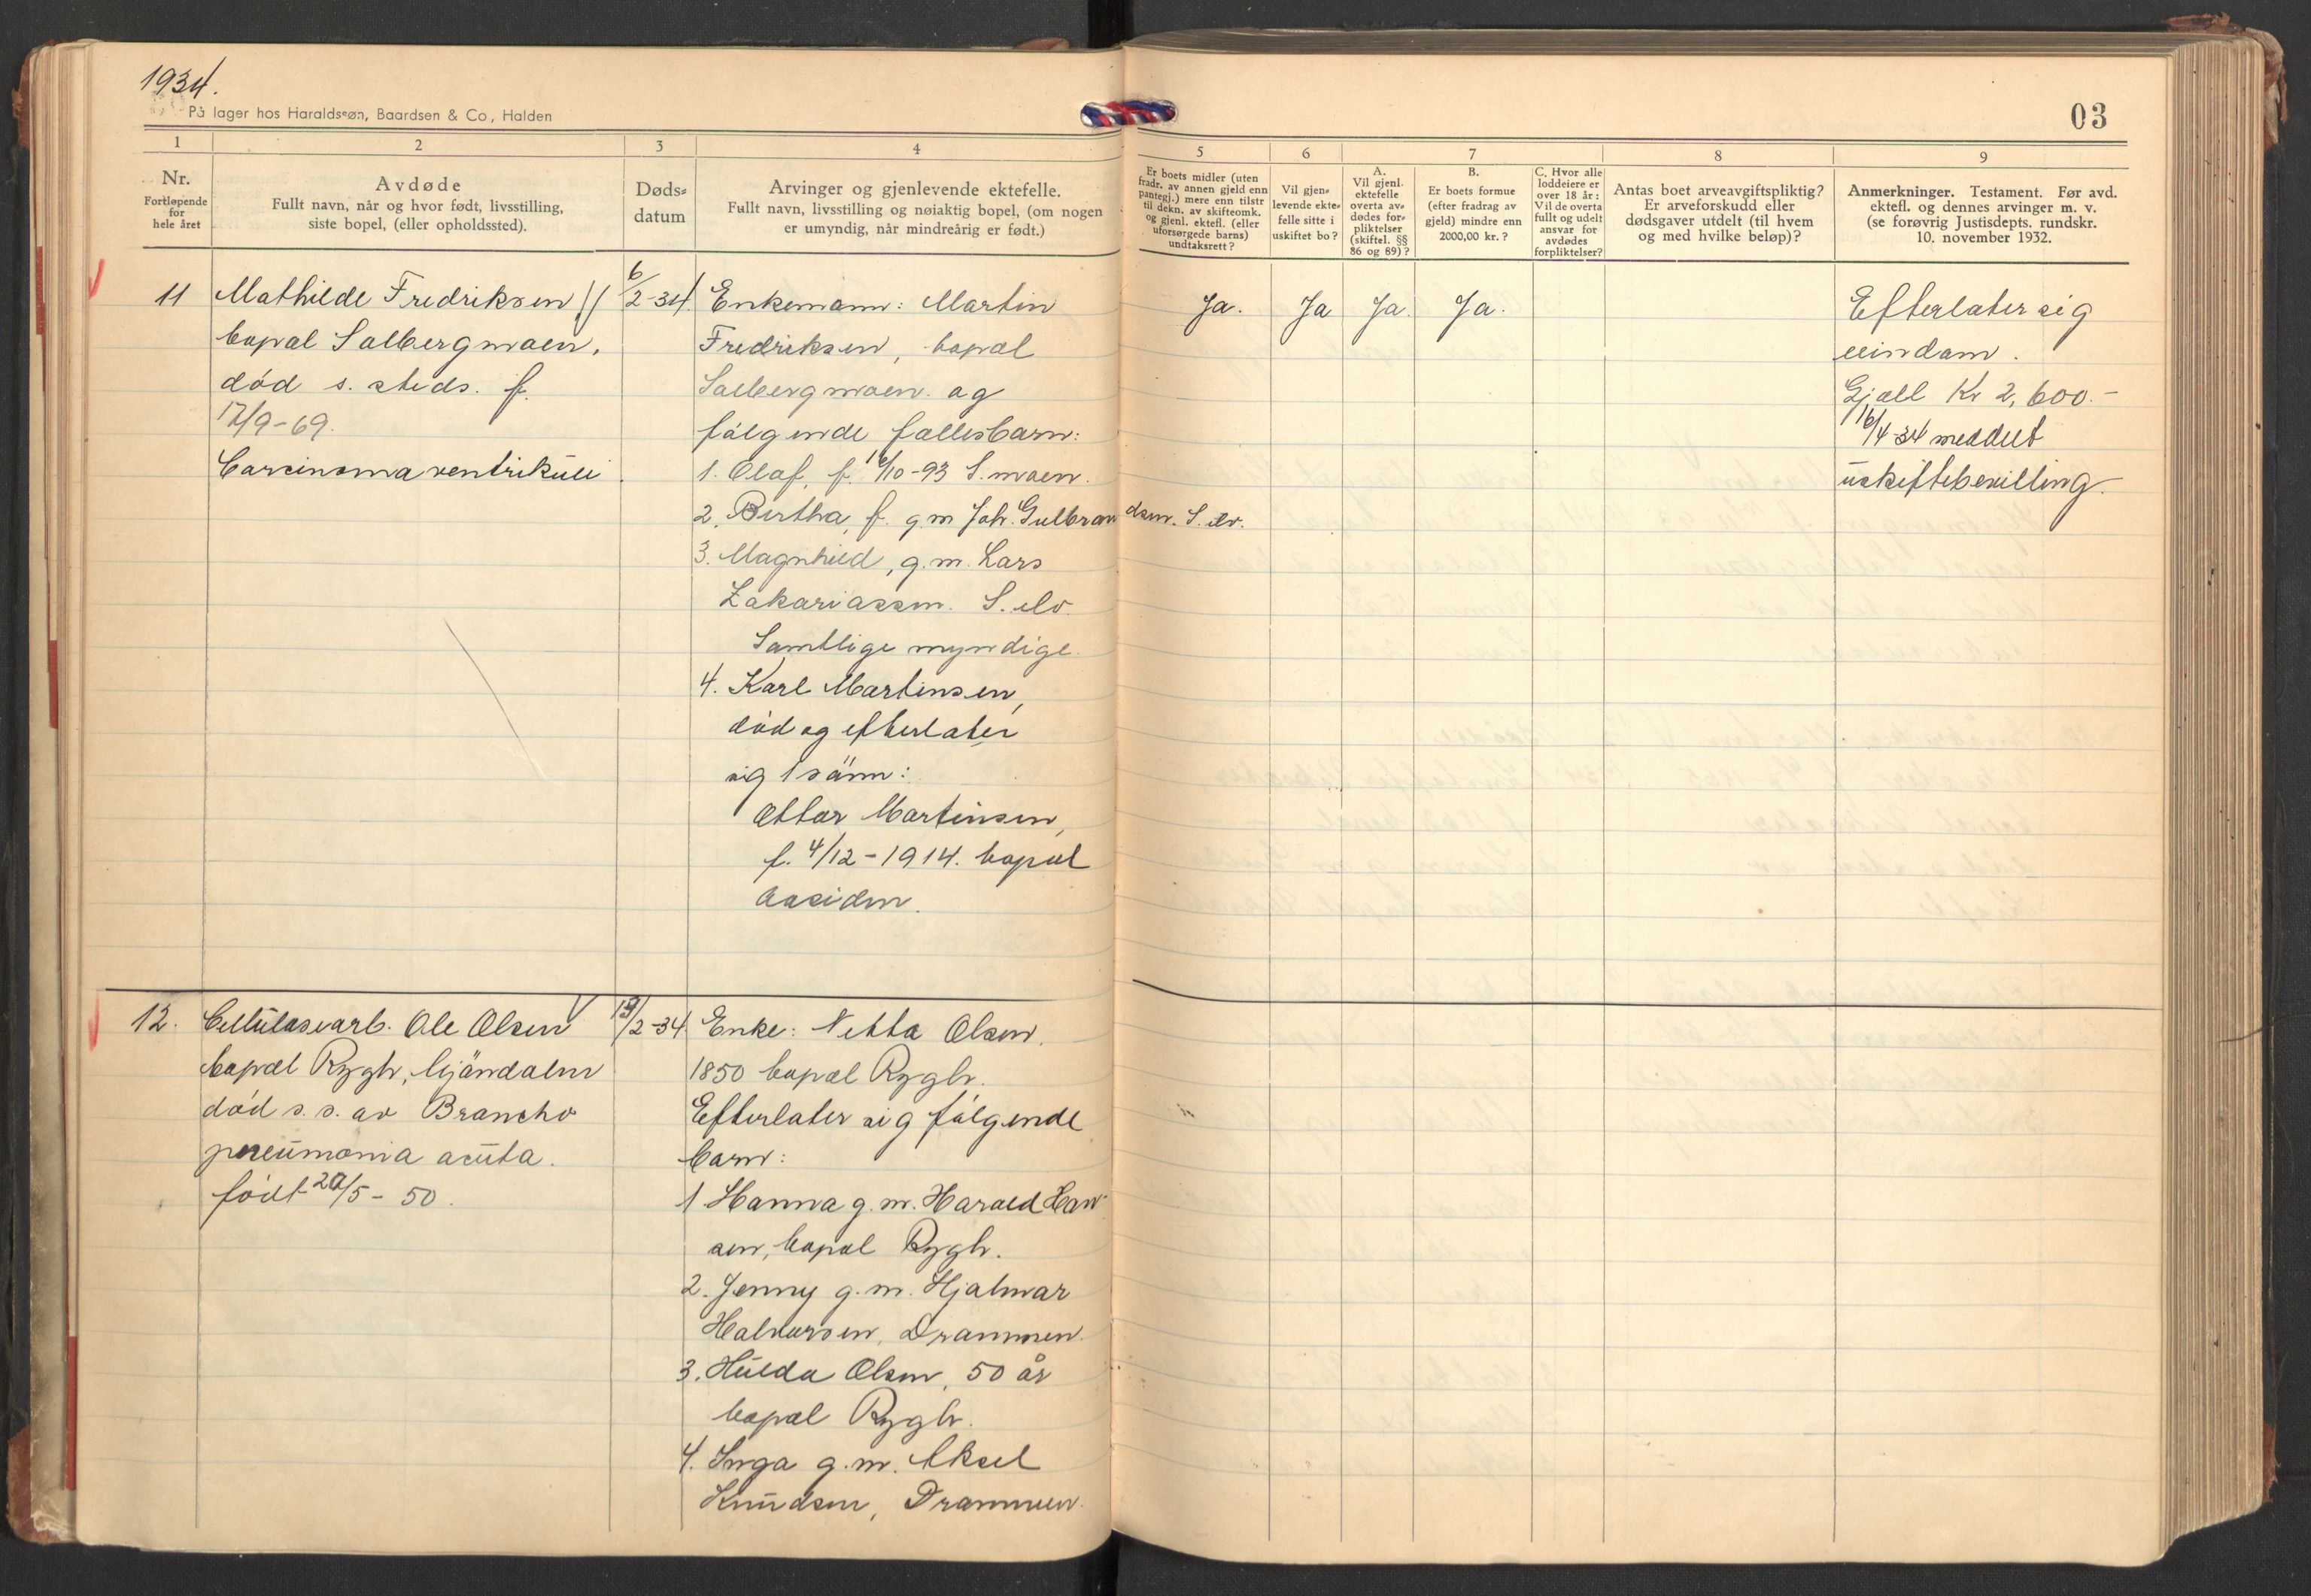 1934.
På lager hos Haraldssøn, Baardsen & Co, Halden
03
1
2
3
4
5
6
7
8
9
Nr.
Fortløpende
for
hele året
Avdøde
Fullt navn, når og hvor født, livsstilling,
siste bopel, (eller opholdssted).
Døds-
datum
Arvinger og gjenlevende ektefelle.
Fullt navn, livsstilling og nøiaktig bopel, (om nogen
er umyndig, når mindreårig er født.)
Er boets midler (uten
fradr. av annen gjeld enn
pantegj.) mere enn tilstr
til dekn. av skifteomk.
og gjenl. ektefl. (eller
uforsørgede barns)
undtaksrett?
Vil gjen-
levende ekte-
felle sitte i
uskiftet bo?
A.
Vil gjenl.
ektefelle
overta av-
dødes for-
pliktelser
(skiftel. §§
86 og 89)?
B.
Er boets formue
(efter fradrag av
gjeld) mindre enn
2000,00 kr.?
C. Hvor alle
loddeiere er
over 18 år:
Vil de overta
fullt og udelt
ansvar for
avdødes
forpliktelser?
Antas boet arveavgiftspliktig?
Er arveforskudd eller
dødsgaver utdelt (til hvem
og med hvilke beløp)?
Anmerkninger. Testament. Før avd.
ektefl. og dennes arvinger m. v.
(se forøvrig Justisdepts. rundskr.
10. november 1932.
11
Mathilde Fredriksen
bopal Solbergmoen,
död s. steds. f.
17/9-69.
Carcinoma ventriküli
6/2-34.
Enkemann: Martin
Fredriksen, bopæl
Solbergmoen. og
fölgende fællesbarn:
1. Olaf, f. /10-93 S.moen.
2. Bertha, f. g.m Joh. Gulbrandsen. S. elv.
3. Magnhild, g.m. Lars
Zakariassen. S. elv.
Samtlige myndige.
4. Karl Martinsen,
död og efterlater
sig 1 sönn:
Ottar Martinsen,
f. 4/12-1914. bopæl
Aasiden.
Ja.
Ja
Ja.
Ja.
Efterlater sig
eiendom.
Gjæll Kr 2,600.-
16/4-34 meddelt
üskiftebevilling.
12.
Cellülosearb. Ole Olsen
bopæl Rygh, Mjöndalen
död s. s. av Broncho
pneümonia acüta.
födt 20/5-50.
19/2-34.
Enke: Netta Olsen.
1850 bopæl Rygh.
Efterlater sig fölgende
barn:
1 Hanna g.m. Harald Han-
sen, bopæl Rygh.
2. Jenny g.m. Hjalmar
Halvorsen, Drammen.
3. Hülda Olsen, 50 år
bopæl Rygh.
4. Inga g.m. Aksel
Knüdsen, Drammen.